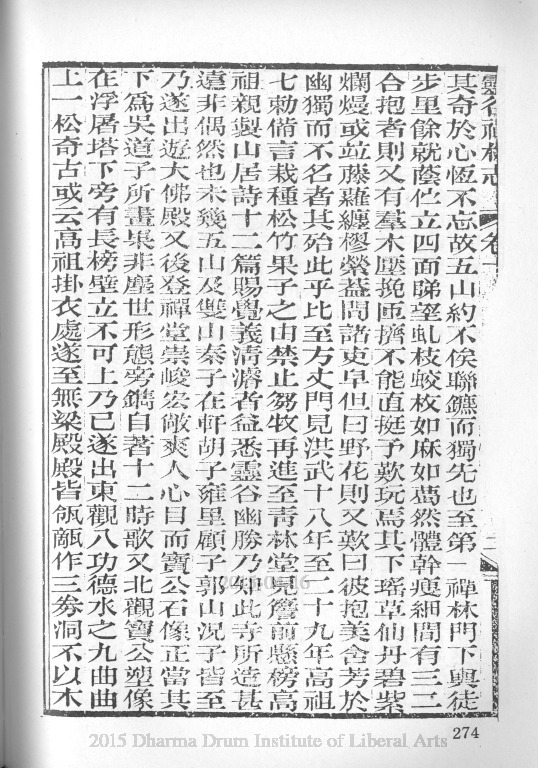 靈谷禪林志 卷十 二
其奇於心恆不忘故五山約不俟聯鑣而獨先也至第一禪林門下輿徒
步里餘就蔭伫立四面睇望虬枝蛟枚如麻如葛然體幹瘦細間有三二
合抱者則又有羣木壓挽匝擠不能直挺予歎玩焉其下瑤草仙丹碧紫
爛熳或竝藤蘿纏樛縈葢問諸吏皁但曰野花則又歎曰彼抱美含芳於
幽獨而不名者其殆此乎比至方丈門見洪武十八年至二十九年高祖
七勅備言栽種松竹果子之由禁止芻牧再進至靑林堂見簷前懸榜高
祖親製山居詩十二篇賜覺義淸濬者益悉靈谷幽勝乃知此寺所造甚
遠非偶然也未幾五山及雙山泰子在軒胡子雍里顧子郭山況子皆至
乃遂出遊大佛殿又後登禪堂崇峻宏敞爽人心目而寶公石像正當其
下爲吳道子所畫果非塵世形態旁鐫自著十二時歌又北觀寶公塑像
在浮屠塔下旁有長榜壁立不可上乃已遂出東觀八功德水之九曲曲
上一松奇古或云高祖掛衣處遂至無梁殿殿皆瓴甋作三劵洞不以木
274
2015 Dharma Drum Institute of Liberal Arts